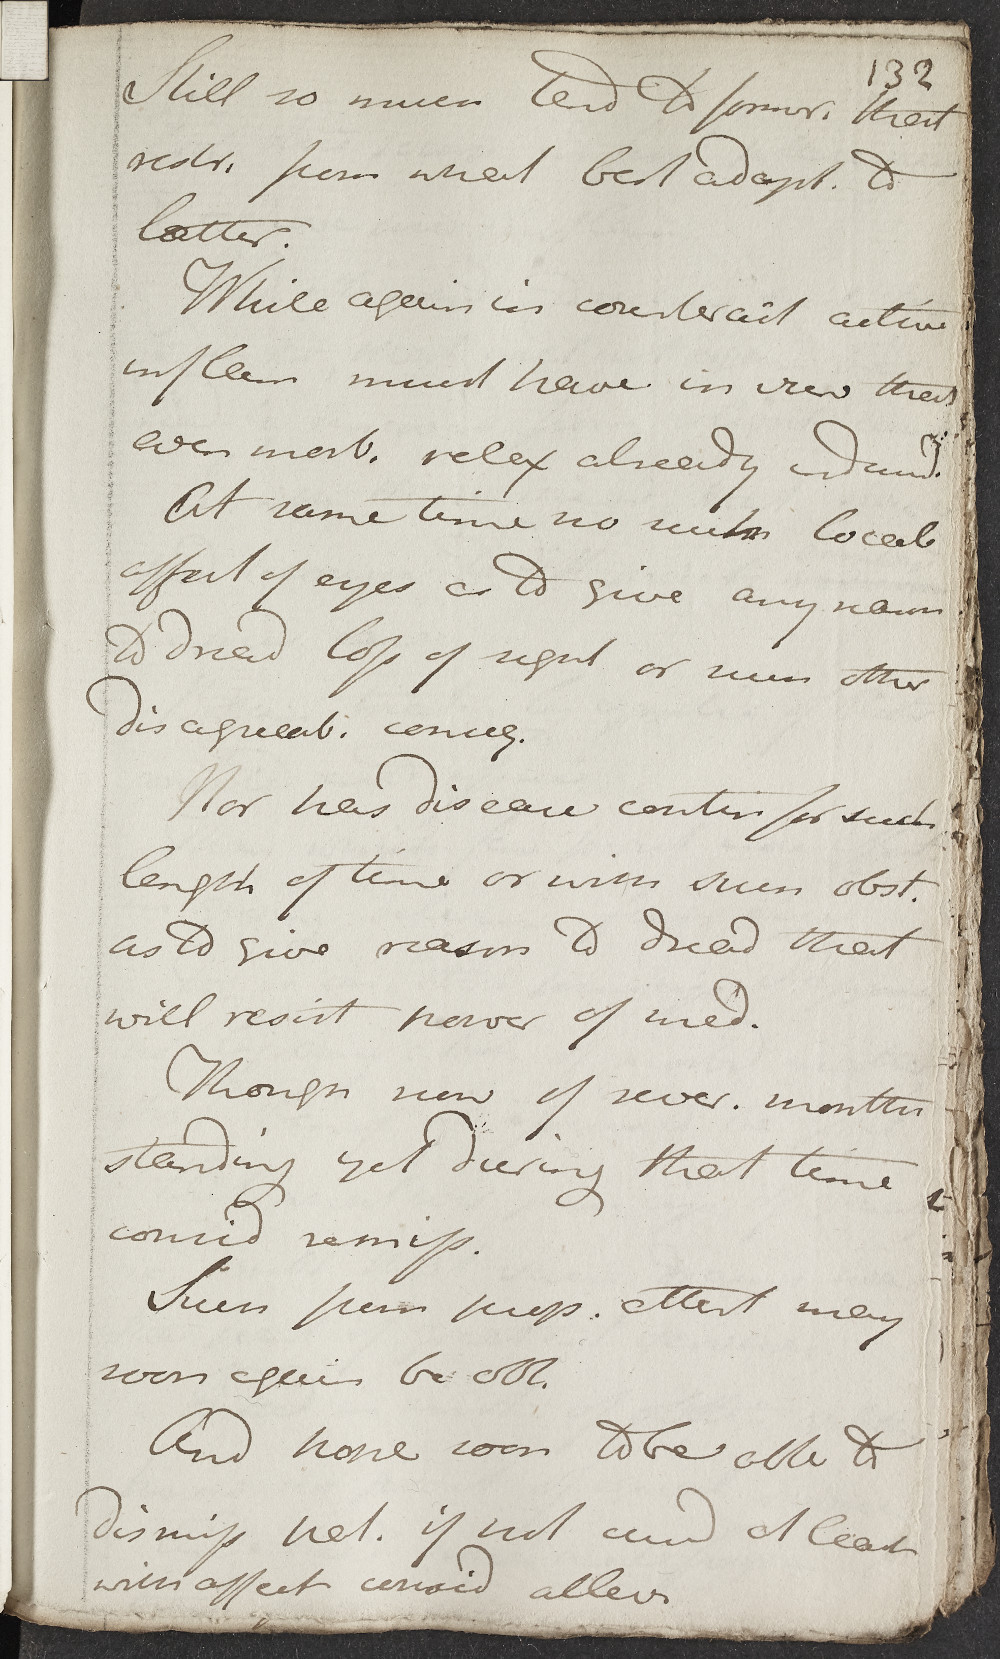 132
Still so much tend to former. that
restr. from what best adapt. to
latter.
While again in counteract active
inflam must have in view that
even morb. relax already induced.
At same time no such local
affect of eyes as to give any reason
to dread loss of sight or such other
disagreeab. conseq.
Nor has disease contin for such
length of time or with such obst.
as to give reason to dread that
will resist power of med.
Though now of sever. months
standing yet during that time
consid remiss.
Such from prop. attent may
soon again be obt.
And hope soon to be able to
dismiss pat. if not cured at least
with affect consid allev